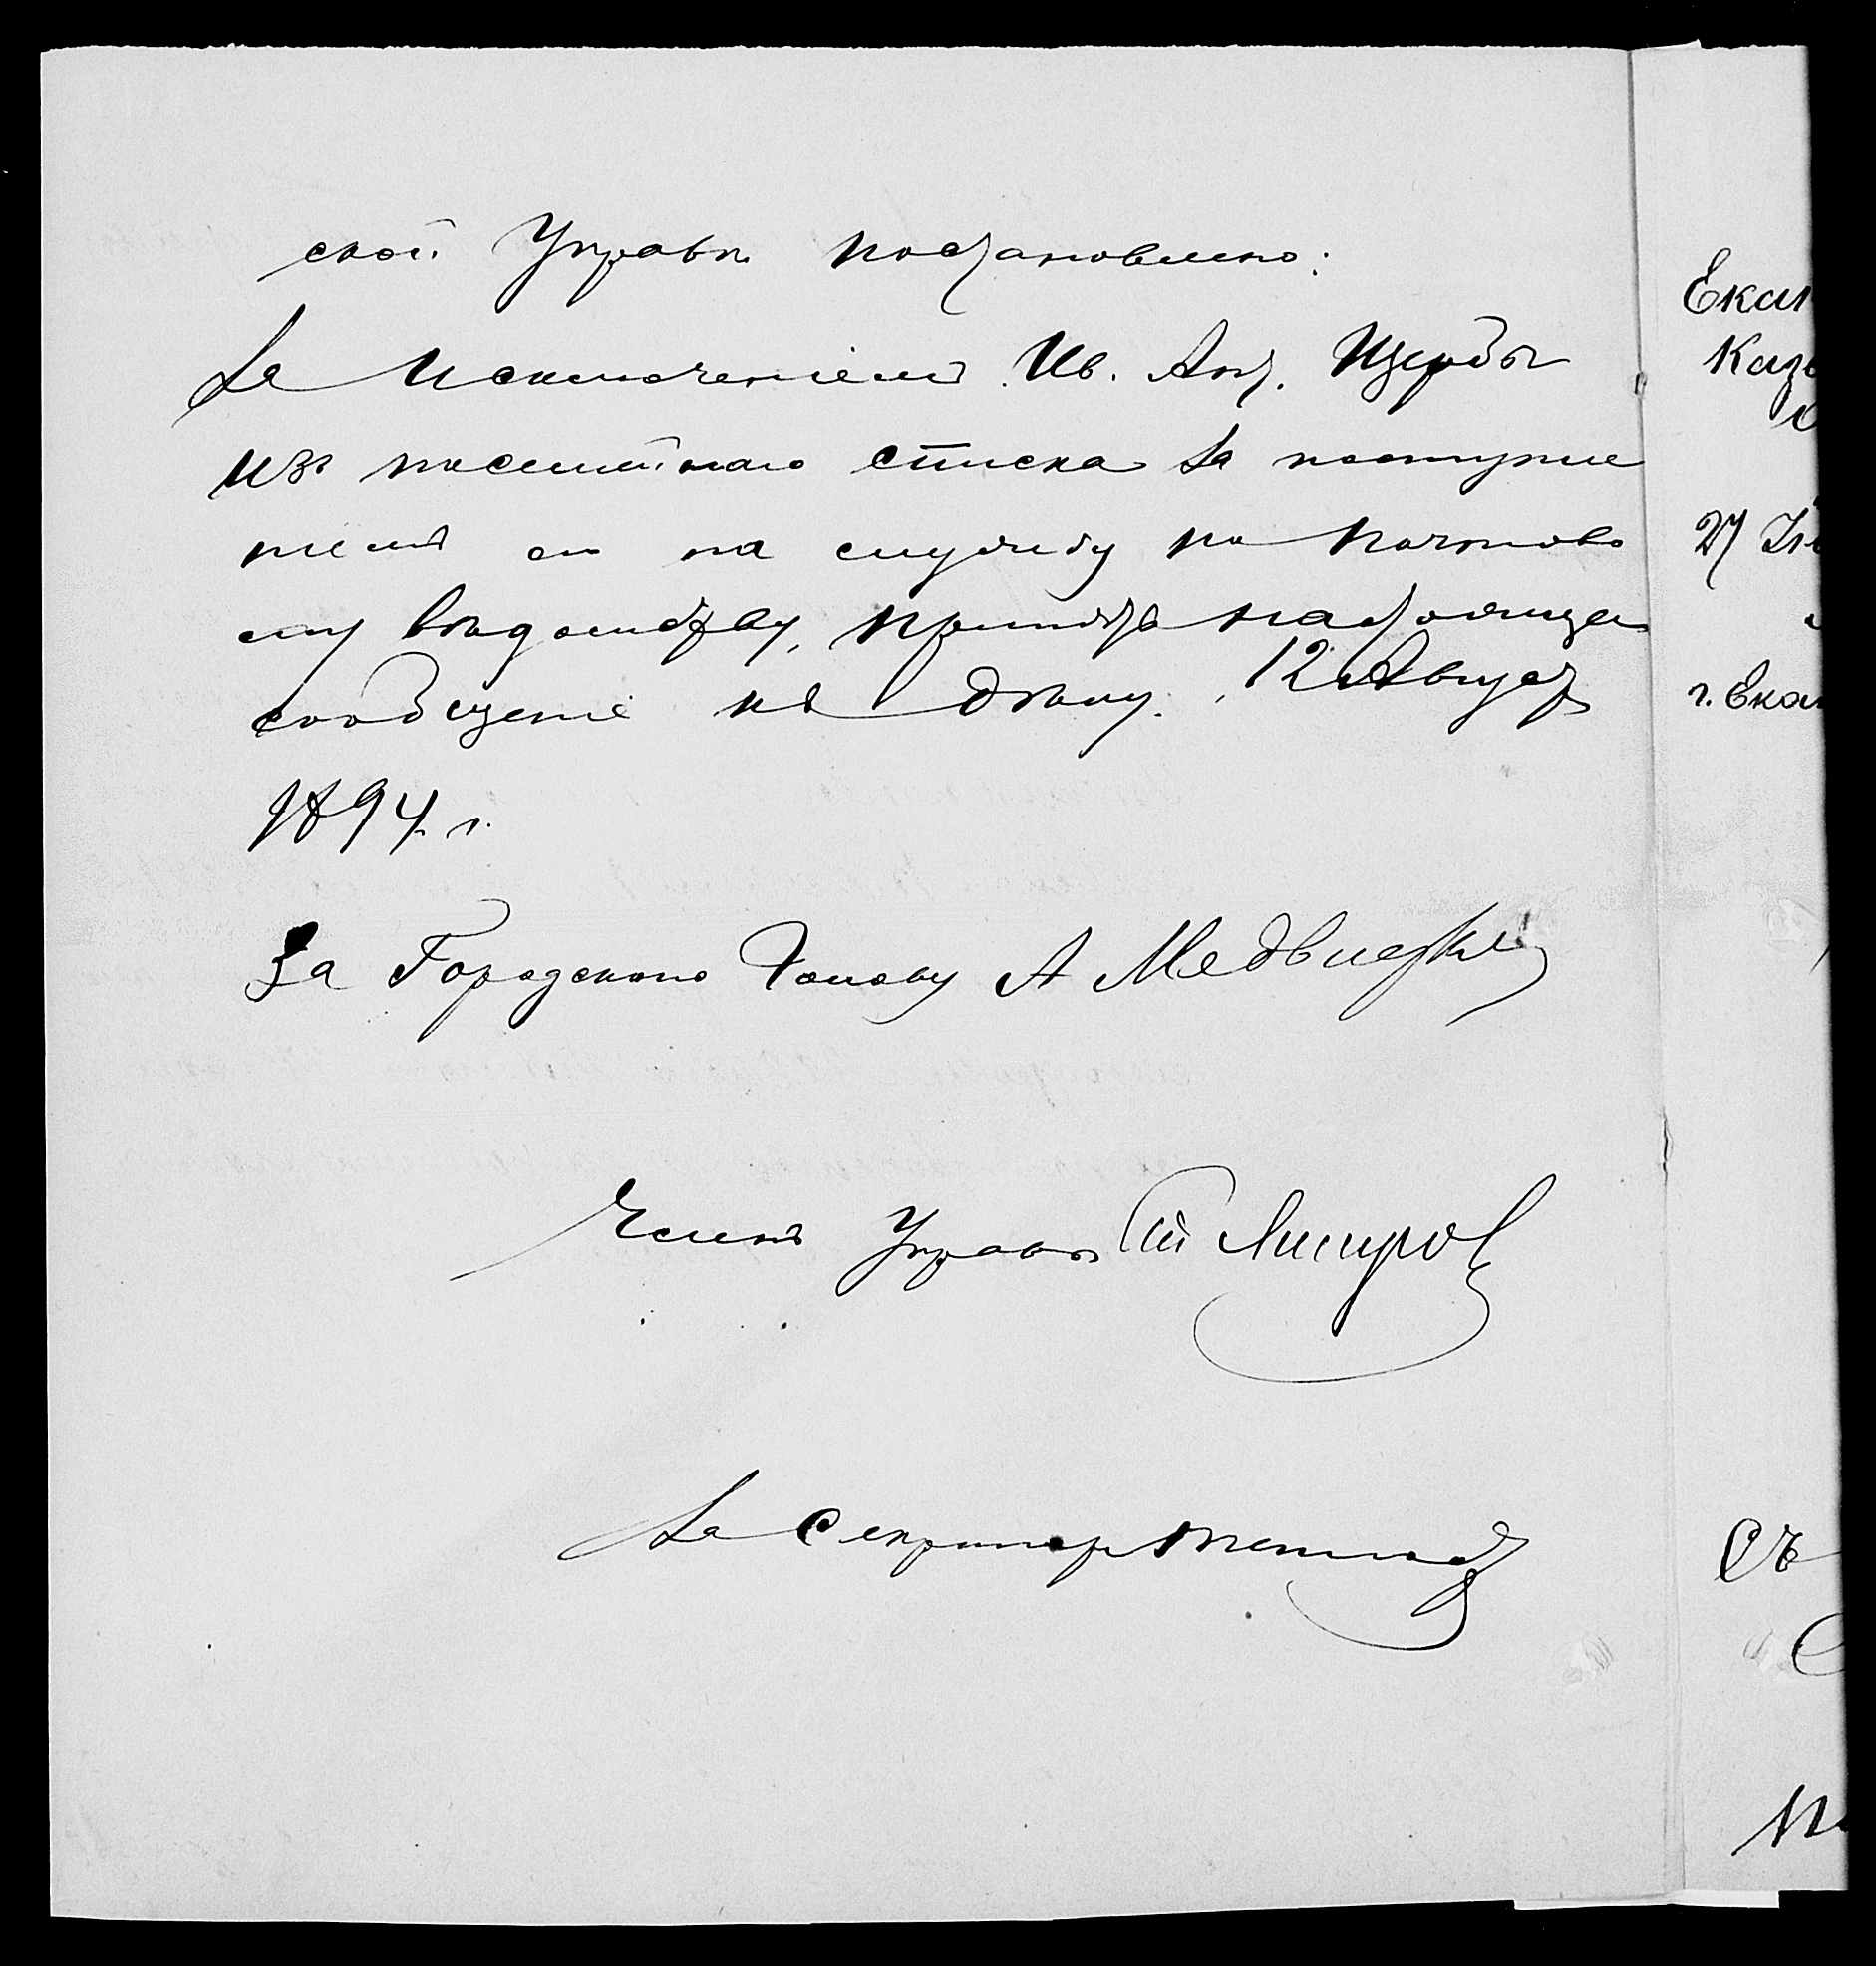 ской Управы постановлено:
За исключеніемъ Ив. Ант. Щербы
изъ посемейнаго списка за поступле
ніемъ его на службу по почтово
му вѣдомству, пріобщить настоящее
сообщеніе къ дѣлу. 12 Август
1894 г.
За Городского Голову А
Членъ Управы
За Секретар
Екат
Каз
27 Ію
г. Екат
Съ